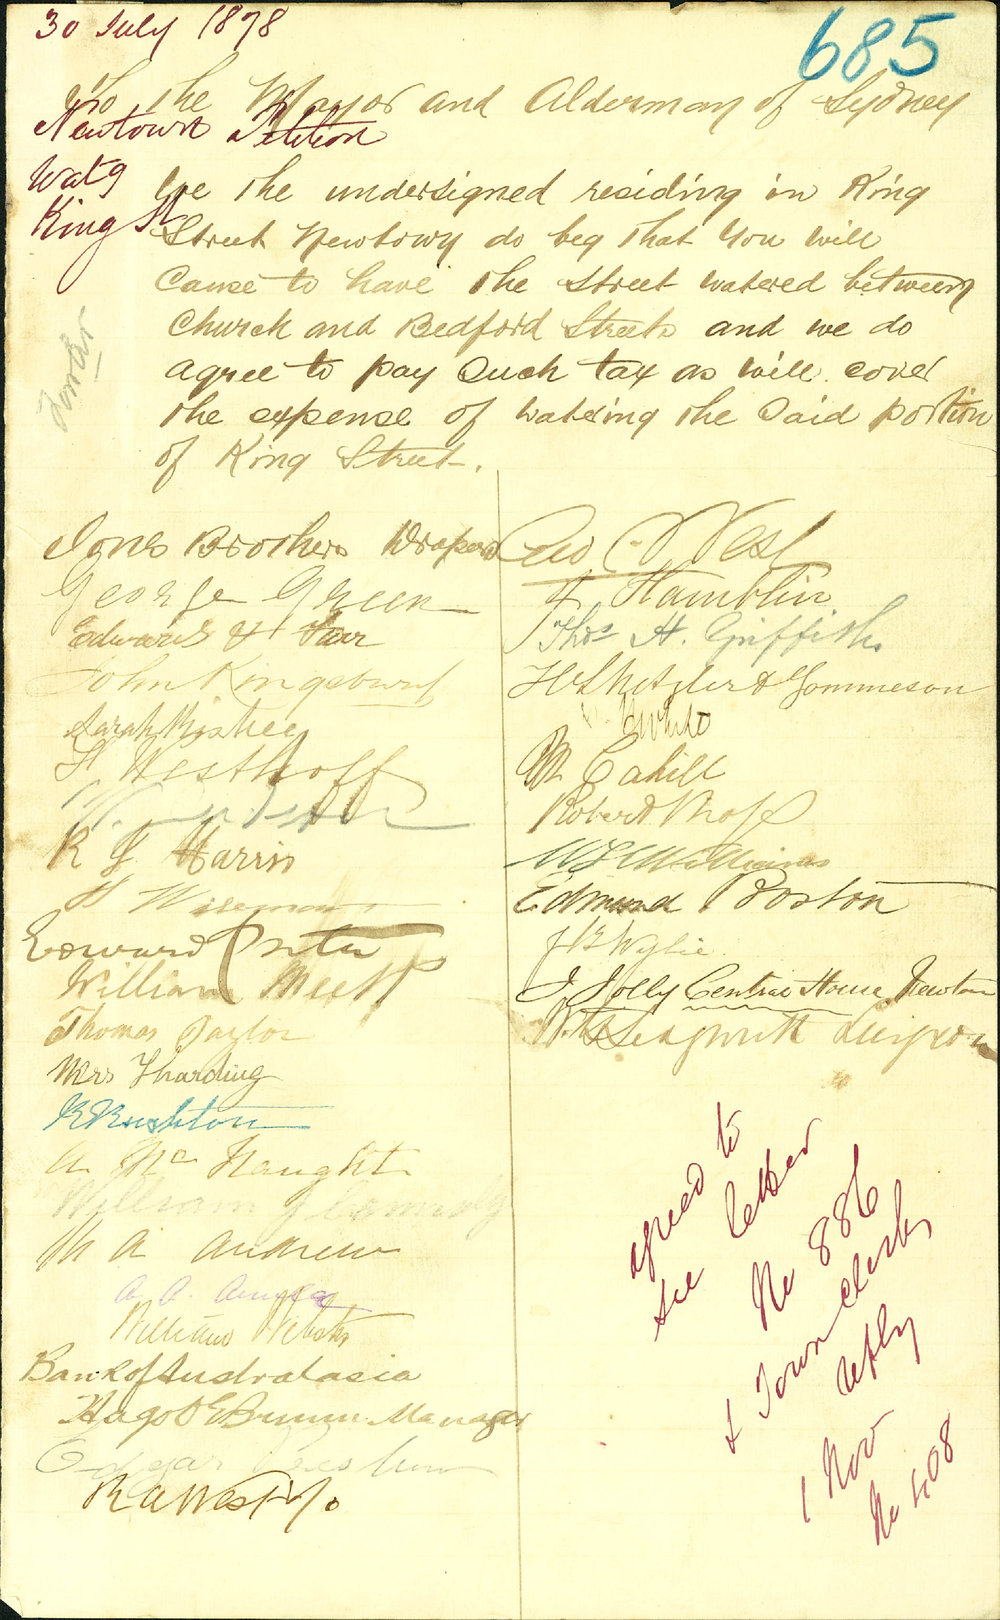 30 July 1878
685
To the Mayor and Alderman of Sydney
Newtown Petition
Wat g
King St
We the undersigned residing in King
Street Newtown do beg that You will
Cause to have the Street watered between
Church and Bedford Streets and we do
agree to pay Such tax as will cover
the expense of watering the Said portion
of King Street.
Jones Brothers Drapers
George Green
Edward H Farr
John Kingsbury
Sarah
H Westhoff
R J Harris
H Wiseman
Edward
William
Thomas Taylor
Mrs Harding
R Rushton
A Mc Naught
William J
M A Andrew
A. A.
William Webster
Bank of Australasia
Hugo Manager
Edgar
R A West & Co
Geo West
F Hamblin
Thos H. Griffiths
White
M Cahill
Robert
Williams
Edmund Boston
J B Wylie
J Jolly Central House Newtown
agreed to
see letter
No 886
& Town Clerks
reply
1 Nov
No 408